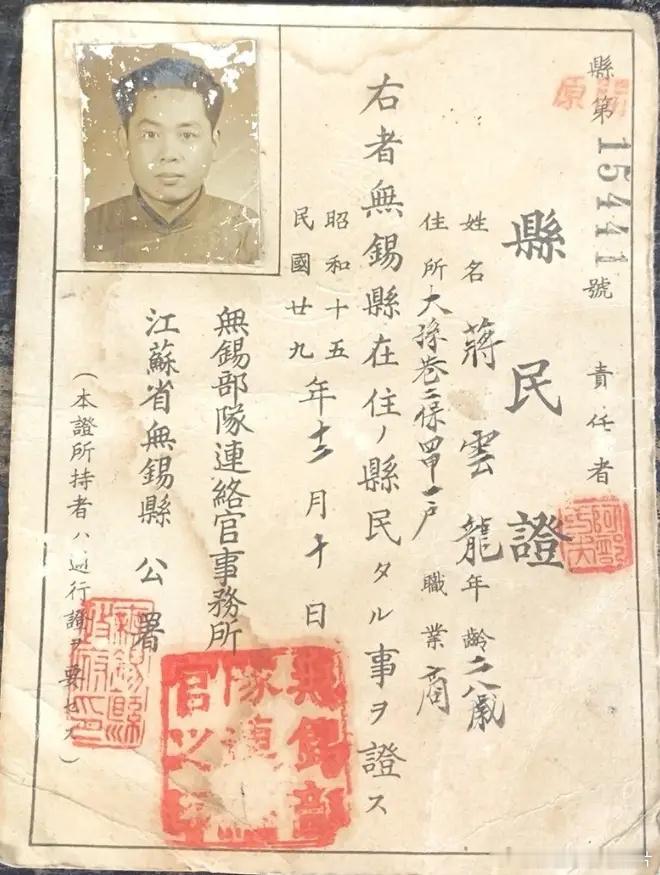 縣第15441號 責任者
縣民證
姓名 蔣雲龍 年齡 二八歲
住所 大孫巷三保四甲一戶 職業 商
右者無錫縣在住ノ縣民タル事ヲ證ス
昭和十五
民國廿九年十二月十日
無錫部隊連絡官事務所
江蘇省無錫縣公署
(本證所持者ハ通行證ヲ要セス)
無錫縣政府印
無錫部隊連絡官之印